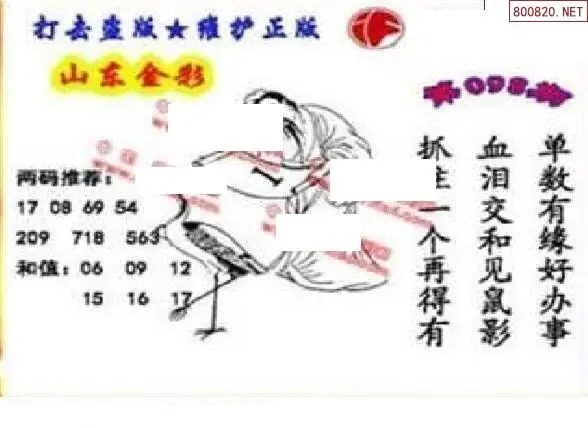 800820.NET
打击盗版★维护正版
山东金彩
单数有缘好办事
血泪交和见鼠影
抓住一个再得有
两码推荐:
17 08 69 54
209 718 563
和值: 06 09 12
15 16 17